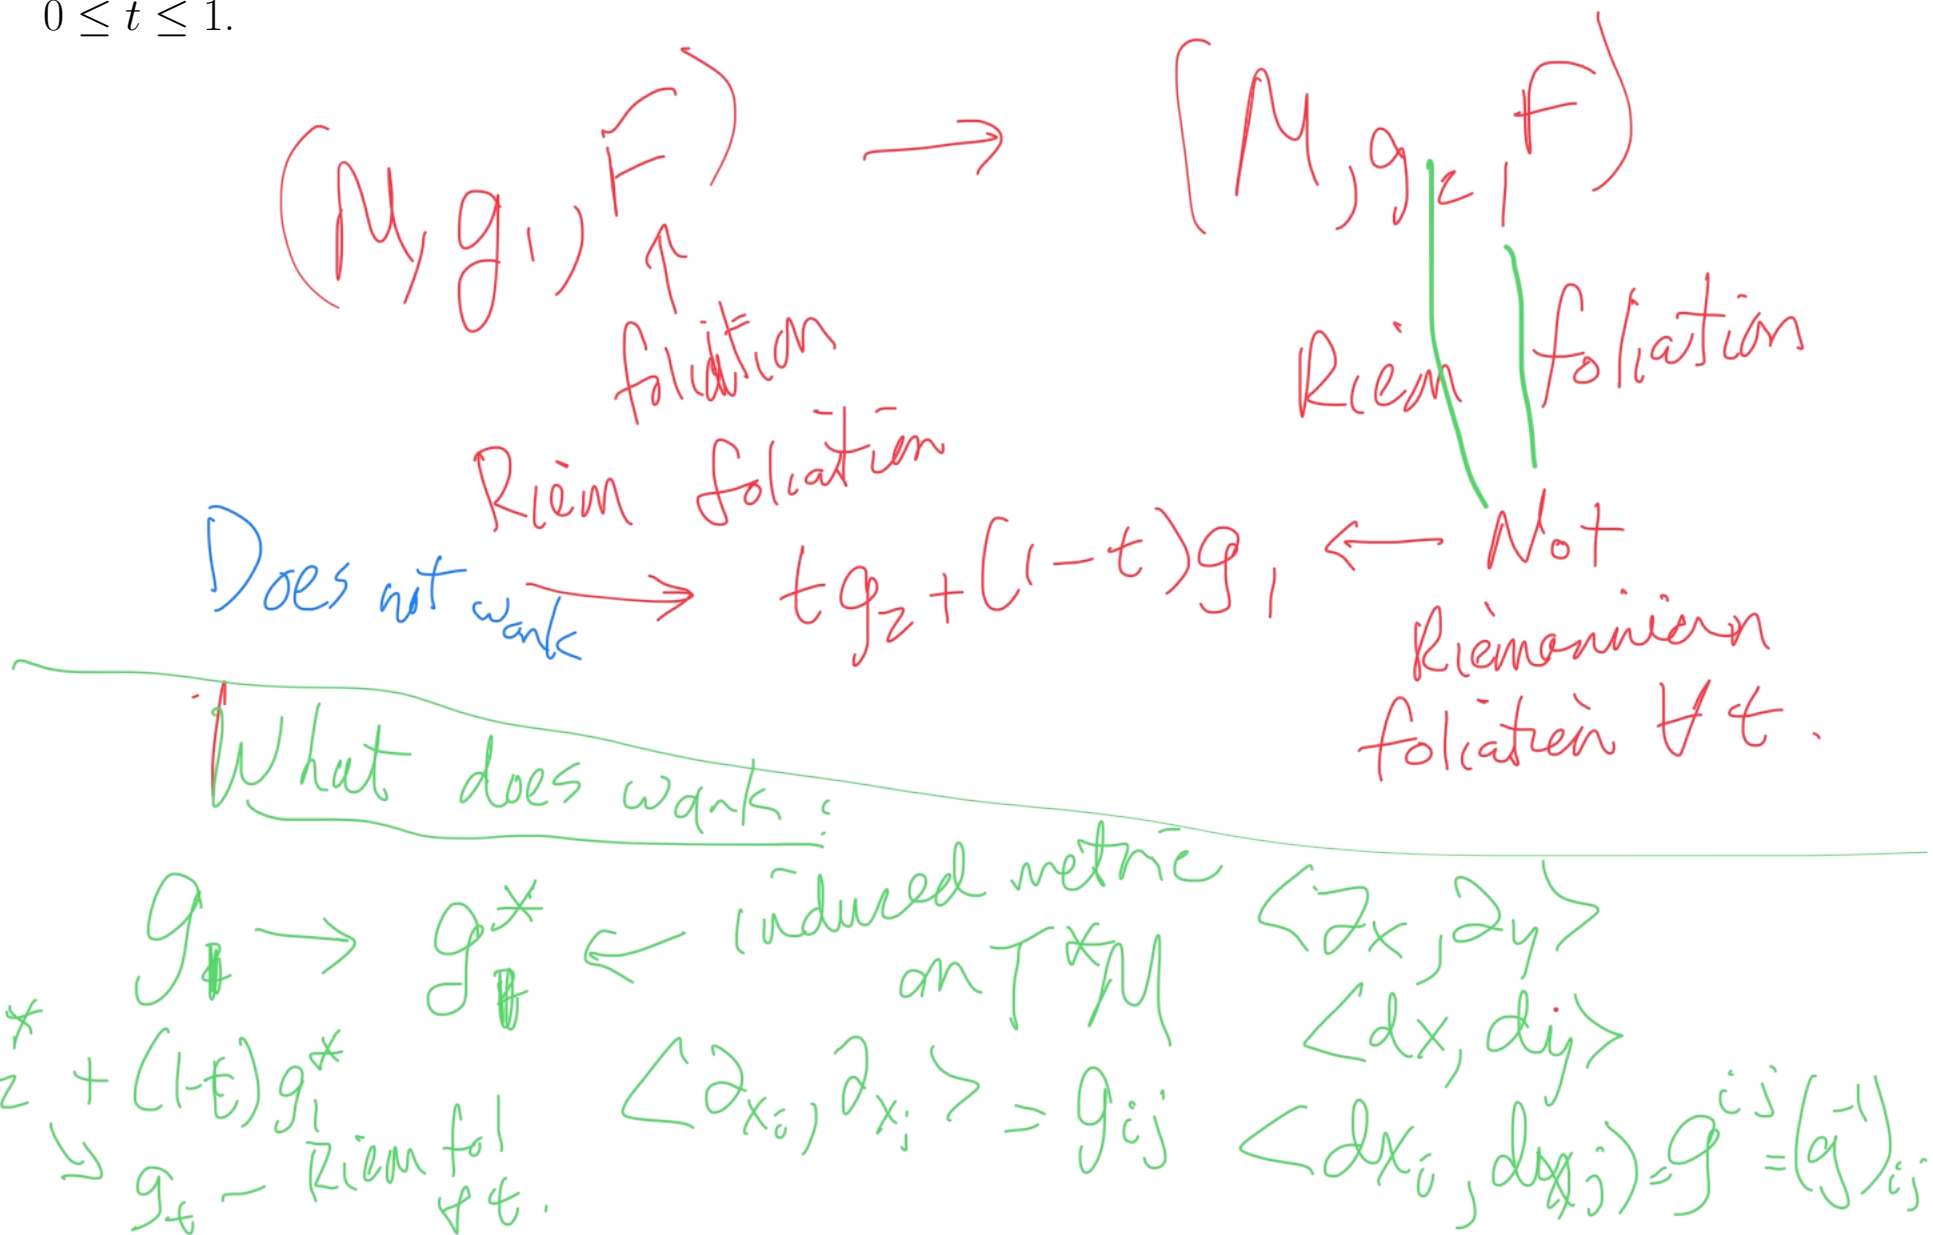 0 ≤ t ≤ 1.
(M, g₁,) F) → (M, g₂, F)
foliation
Riem foliation
Riem foliation
Does not work → t g₂ + (1-t) g₁ ← Not
Riemannian
foliation ∀ t.
What does work:
g → g* ← induced metric
on T*M
⟨∂x, ∂y⟩
⟨dx, dy⟩
₂* + (1-t) g₁*
↘ g_t – Riem fol
∀ t.
⟨∂x_i, ∂x_j⟩ = g_ij
⟨dx_i, dx_j) = g^ij = (g^-1)_ij